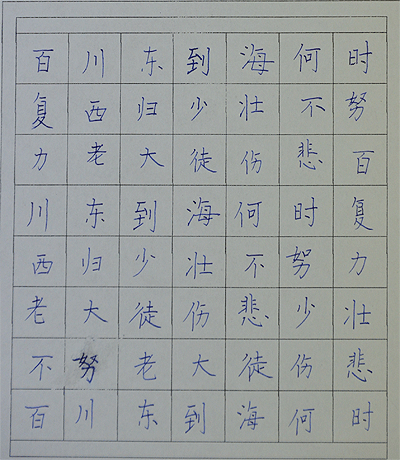 百川东到海何时
复西归少壮不努
力老大徒伤悲百
川东到海何时复
西归少壮不努力
老大徒伤悲少壮
不努老大徒伤悲
百川东到海何时